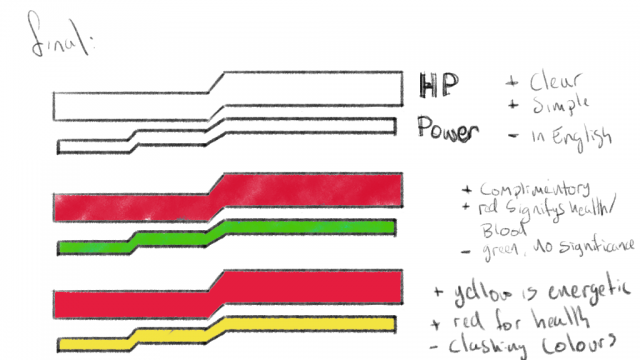 final:
HP
+ Clear
+ Simple
Power
- in English
+ Complimentory
+ red Signifys health/
Blood
- green, no significance
+ yellow is energetic
+ red for health
- clashing Colours